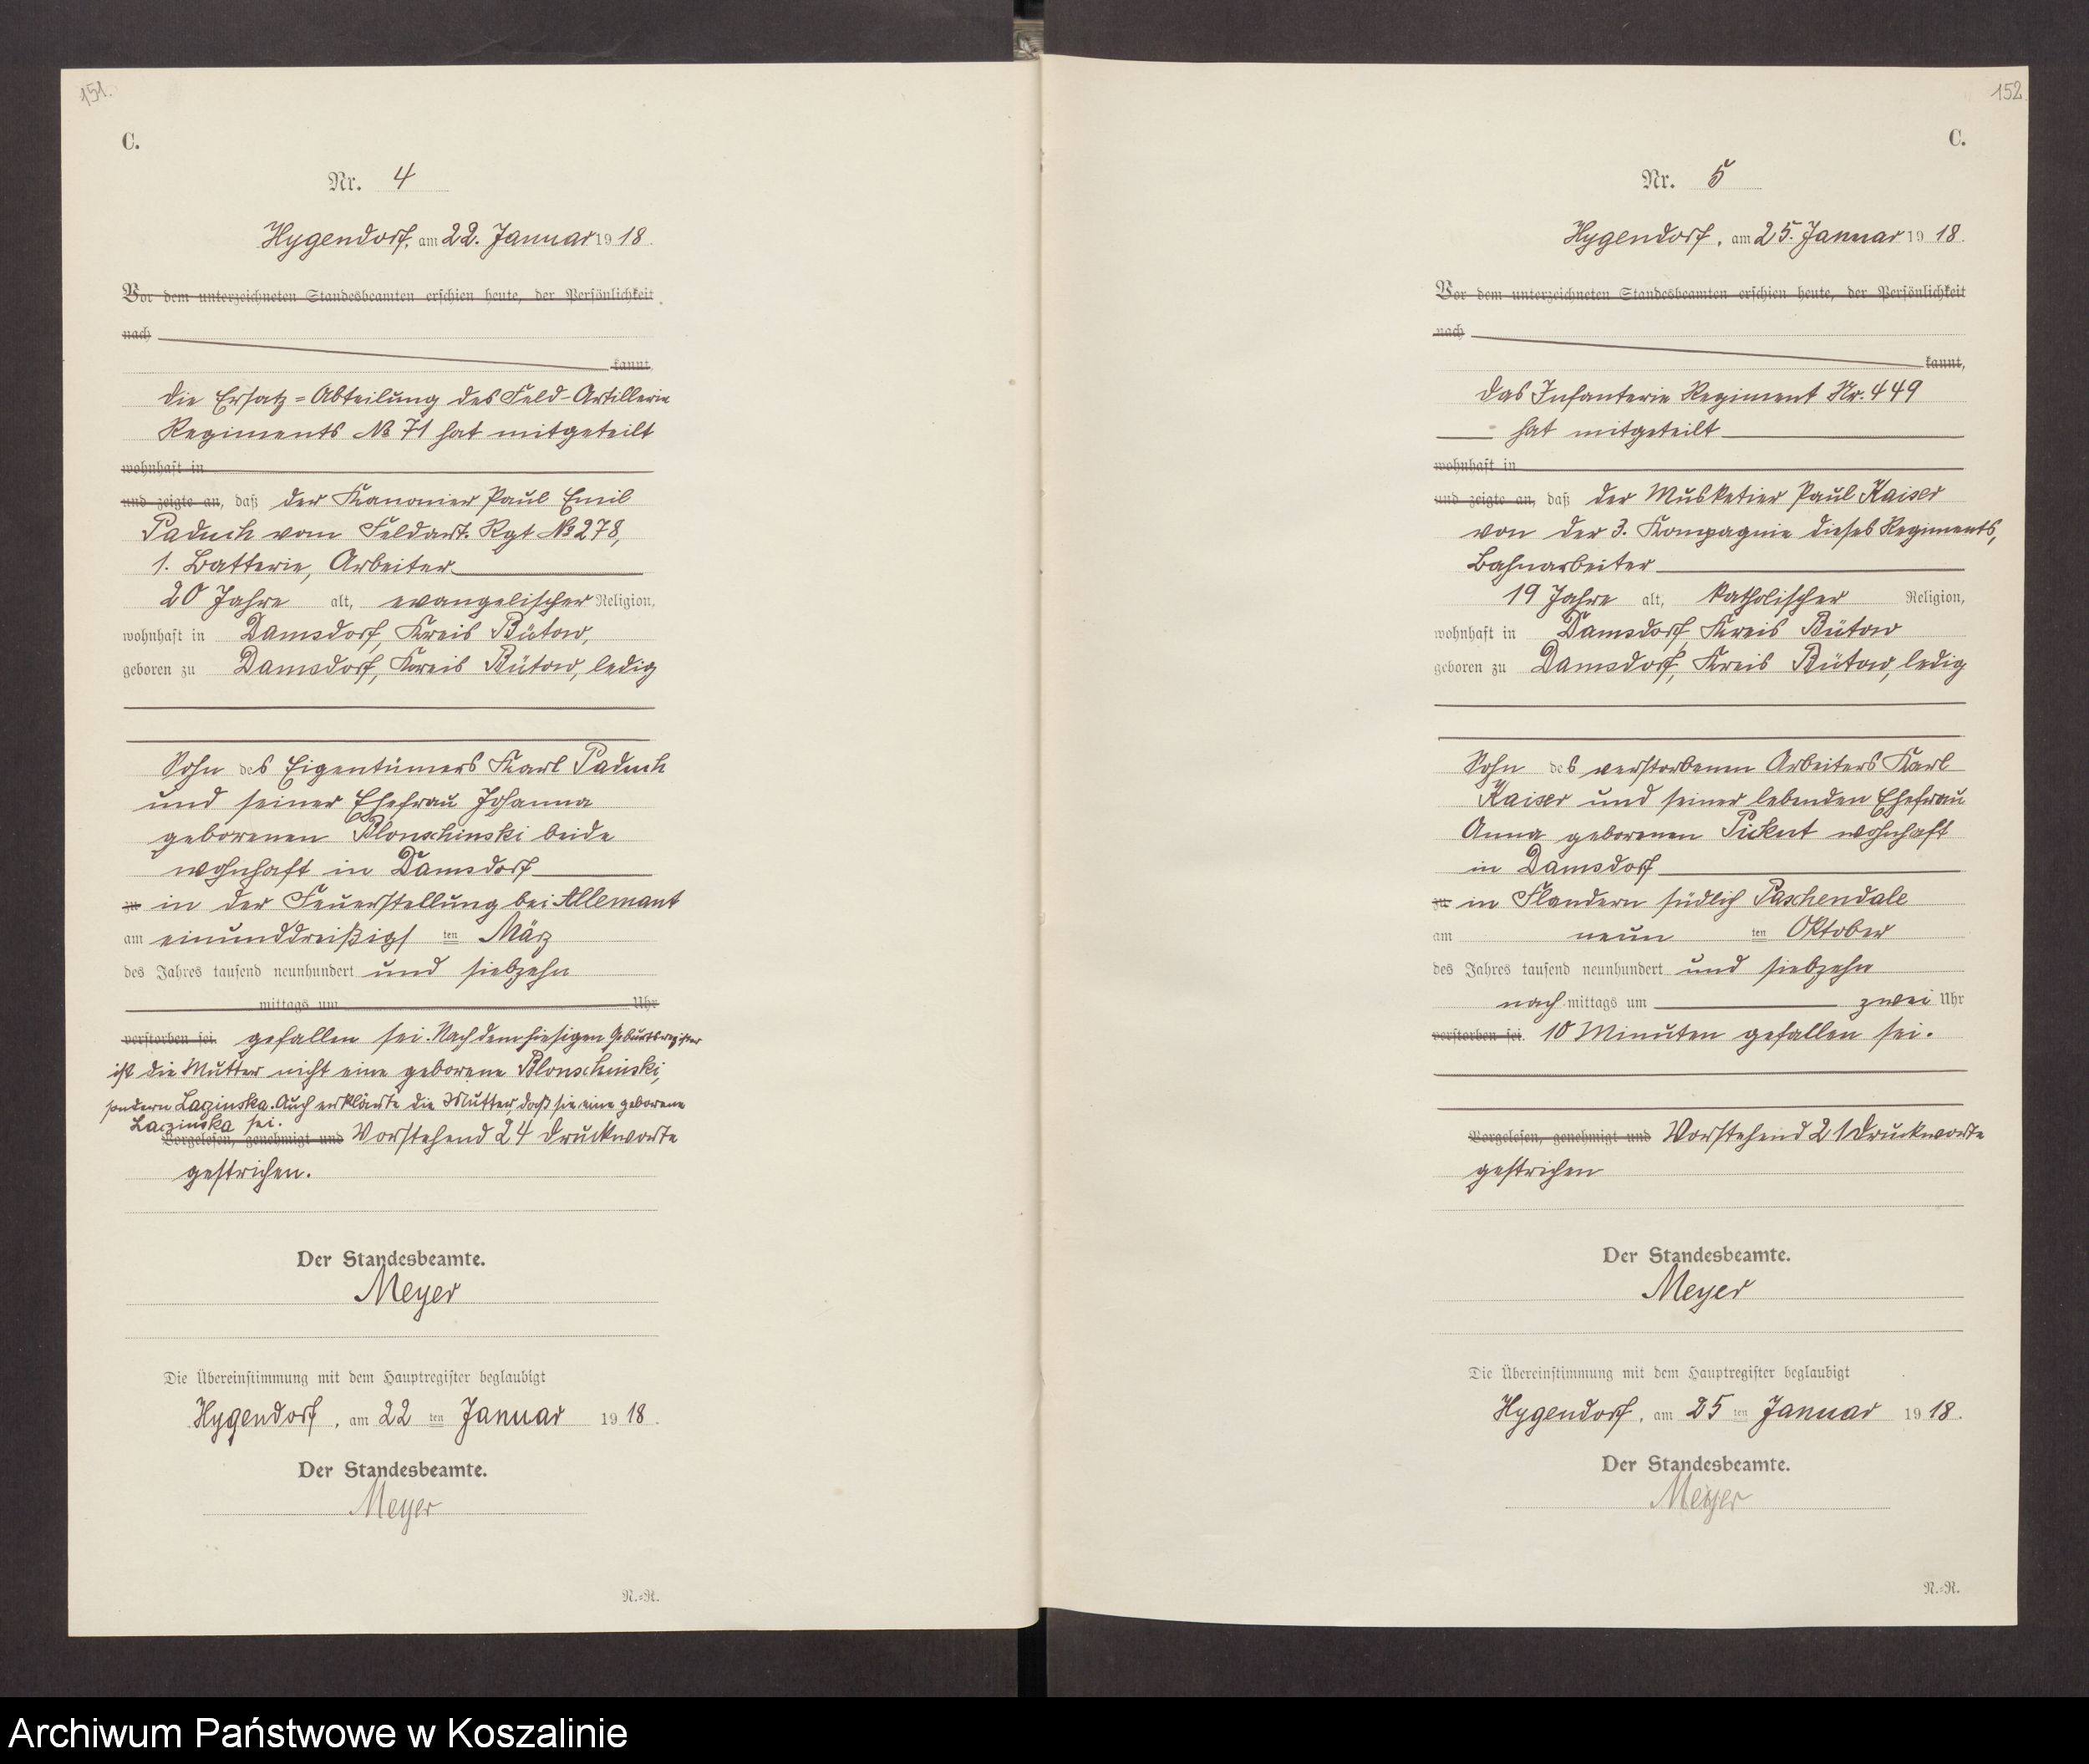 151.
C.
Nr. 4
Hygendorf, am 22. Januar 1918.
Vor dem unterzeichneten Standesbeamten erschien heute, der Persönlichkeit
nach
kannt,
die Ersatz=Abteilung des Feld-Artillerie
Regiments № 71 hat mitgeteilt
wohnhaft in
und zeigte an, daß der Kanonier Paul Emil
Paduch vom Feldart. Rgt № 278,
1. Batterie, Arbeiter
20 Jahre alt, evangelischer Religion,
wohnhaft in Damsdorf, Kreis Bütow,
geboren zu Damsdorf, Kreis Bütow, ledig
Sohn des Eigentümers Karl Paduch
und seiner Ehefrau Johanna
geborenen Blonschinski beide
wohnhaft in Damsdorf
zu in der Feuerstellung bei Allemant
am einunddreißigsten März
des Jahres tausend neunhundert und siebzehn
mittags um Uhr
verstorben sei. gefallen sei. Nach dem hiesigen Geburtsregister
ist die Mutter nicht eine geborene Blonschinski,
sondern Laczinska. Auch erklärte die Mutter, daß sie eine geborene
Laczinska sei.
Vorgelesen, genehmigt und Vorstehend 24 Druckworte
gestrichen.
Der Standesbeamte.
Meyer
Die Übereinstimmung mit dem Hauptregister beglaubigt
Hygendorf, am 22 ten Januar 1918.
Der Standesbeamte.
Meyer
N.=R.
152
C.
Nr. 5
Hygendorf, am 25. Januar 1918.
Vor dem unterzeichneten Standesbeamten erschien heute, der Persönlichkeit
nach
kannt,
das Infanterie Regiment Nr. 449
hat mitgeteilt
wohnhaft in
und zeigte an, daß der Musketier Paul Kaiser
von der 3. Kompagnie dieses Regiments,
Bahnarbeiter
19 Jahre alt, katholischer Religion,
wohnhaft in Damsdorf, Kreis Bütow
geboren zu Damsdorf, Kreis Bütow, ledig
Sohn des verstorbenen Arbeiters Karl
Kaiser und seiner lebenden Ehefrau
Anna geborenen Pickut wohnhaft
in Damsdorf
zu in Flandern südlich Paschendale
am neun ten Oktober
des Jahres tausend neunhundert und siebzehn
nach mittags um zwei Uhr
verstorben sei. 10 Minuten gefallen sei.
Vorgelesen, genehmigt und Vorstehend 21 Druckworte
gestrichen
Der Standesbeamte.
Meyer
Die Übereinstimmung mit dem Hauptregister beglaubigt
Hygendorf, am 25 ten Januar 1918.
Der Standesbeamte.
Meyer
N.=R.
Archiwum Państwowe w Koszalinie